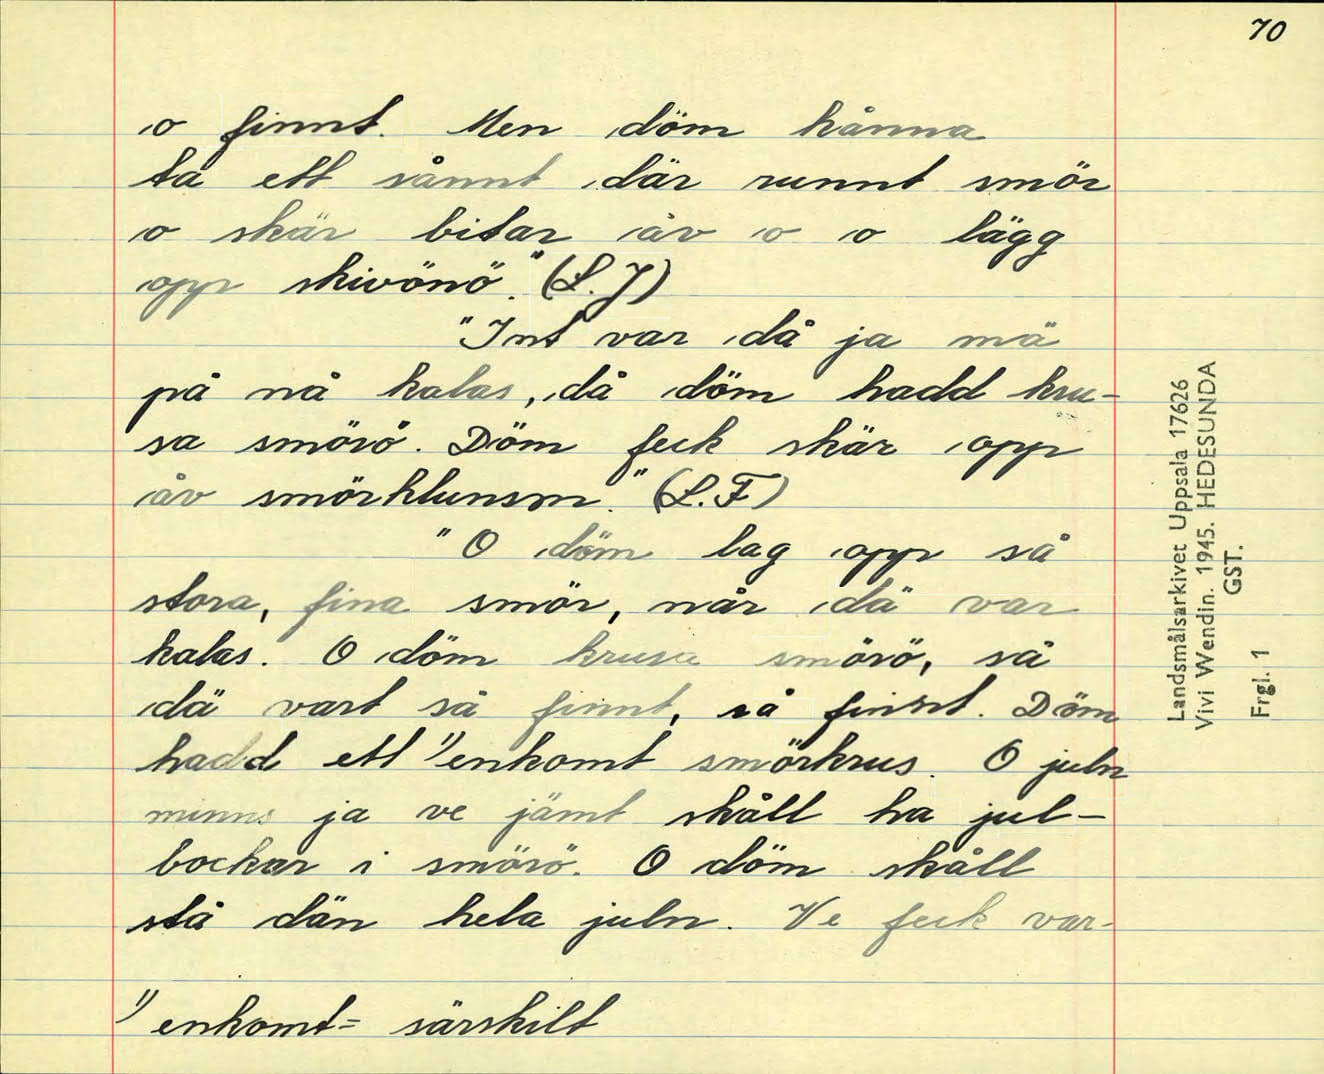 70
o finnt. Men döm kånna
ta ett sånnt där runnt smör
o skär bitar åv o o lägg
opp skivönö." (L.J)
"Int var då ja mä
på nå kalas, då döm hadd kru-
sa smörö. Döm feck skär opp
åv smörklunsm." (L.F)
"O döm lag opp så
stora, fina smör, når dä var
kalas. O döm krusa smörö, så
dä vart så finnt, så finnt. Döm
hadd ett 1) enkomt smörkrus. O juln
minns ja ve jämt skåll ha jul-
bockar i smörö. O döm skåll
stå dän hela juln. Ve feck var-
1) enkomt = särskilt
Landsmålsarkivet Uppsala 17626
Vivi Wendin. 1945. HEDESUNDA
GST.
Frgl. 1